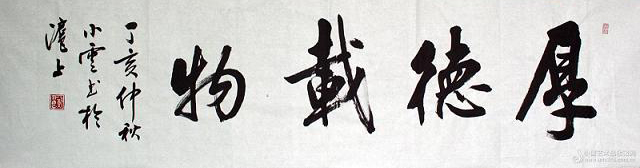 厚德載物
丁亥仲秋
小雲书於
滬上